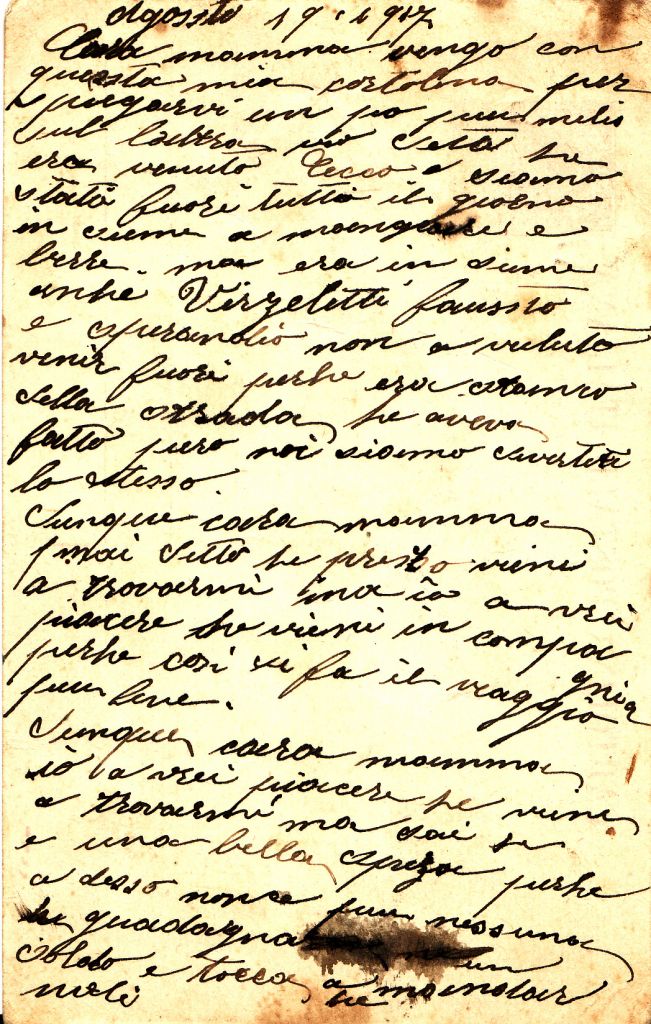 Agossto 19. 1917
Cara mamma vengo con
questa mia cartolina per
piegarvi un po piu melio
sul laltra vio detto he
era venuto Cecco e siamo
stati fuori tutto il giorno
in sieme a mangiare e
berre. ma era in sieme
anhe Virzeletti faussto
e sperandio non a vuluto
venir fuori perhe era stanco
della strada he aveva
fatto pero noi siamo divertiti
lo stesso.
Dunque cara mamma
mai detto he presto vieni
a trovarmi ma io a vrei
piacere he vieni in compa
gnia
perhe cosi si fa il viaggio
piu bene.
Dunque cara mamma
io a vrei piacere he vieni
a trovarmi ma sai he
e una bella speza perhe
a desso non ce piu nessuno
he guadagna un
soldo e tocca a mandar
meli he